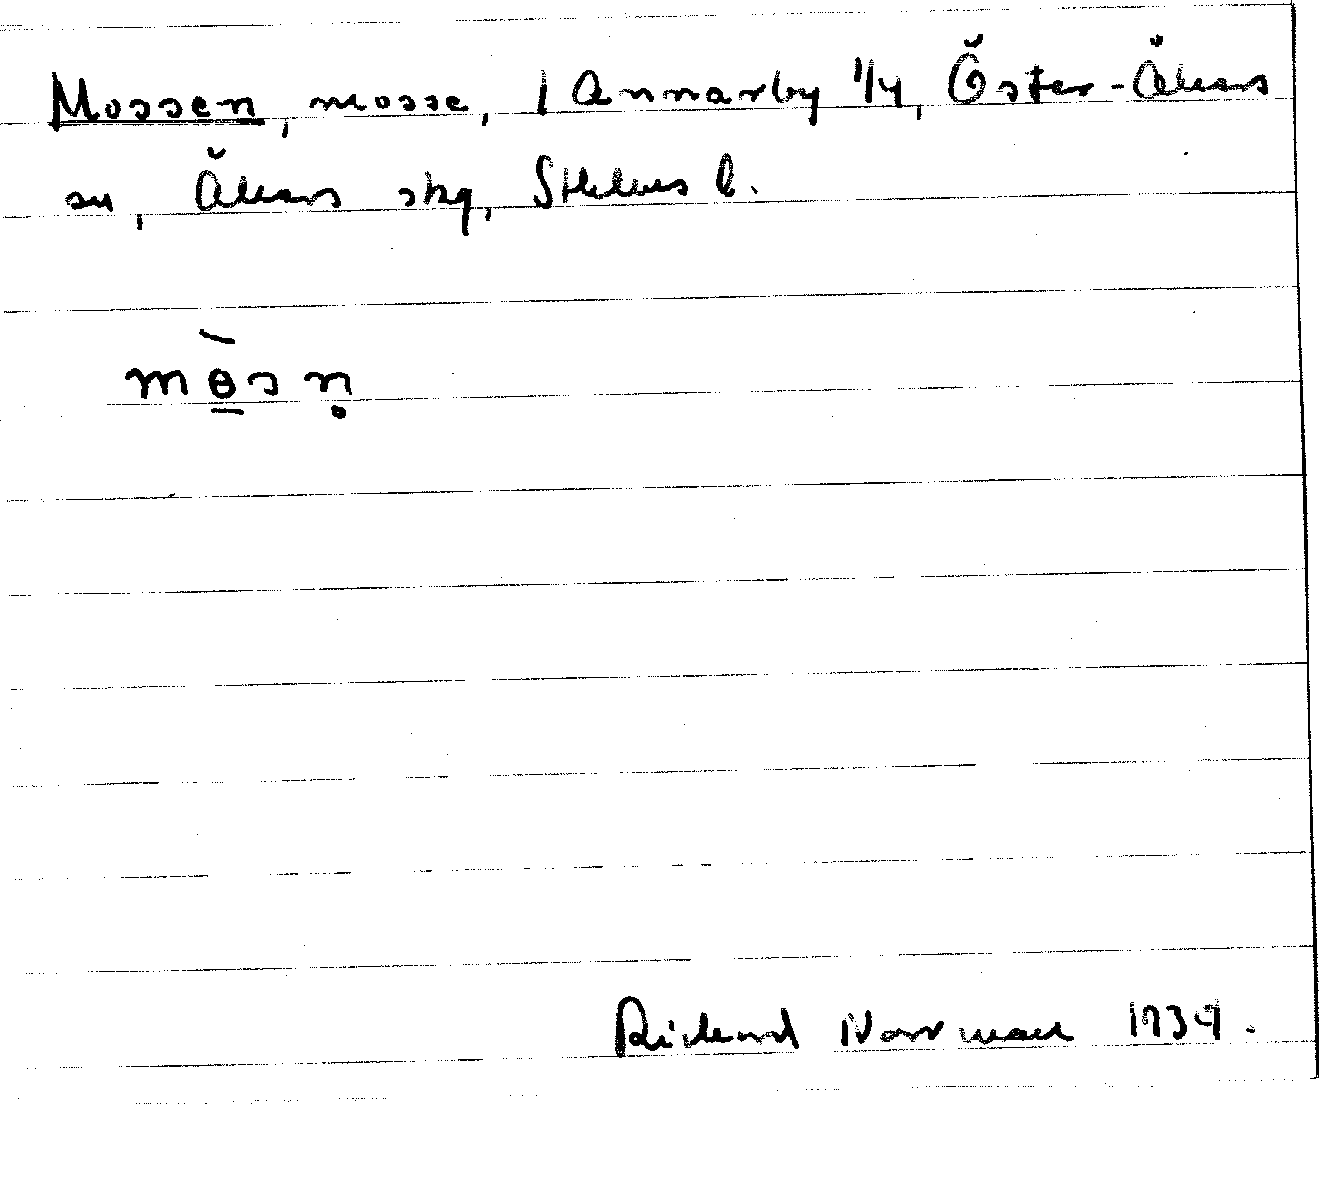 Mossen, mosse, 1 Annarby 1/4, Öster-Åkers
sn, Åkers skg, Sthlms l.
mɵsn̥
Rickard Norrman 1934.